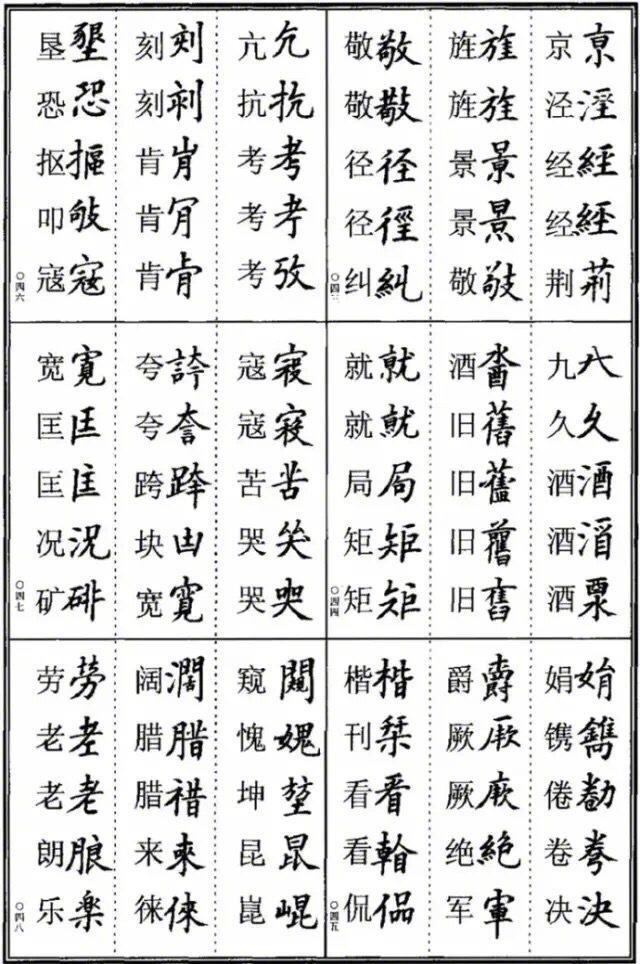 京亰 泾淫 经經 经經 荆荊
旌旌 旌旌 景景 景景 敬
敬敬 敬 径径 径徑 纠糾
〇四三
九 久久 酒酒 酒 酒
酒 旧舊 旧 旧舊 旧
就就 就 局局 矩矩 矩矩
〇四四
娟娟 镌鐫 倦勌 卷 决決
爵爵 厥 厥 绝絶 军軍
楷楷 刊栞 看看 看 侃偘
〇四五
亢 抗抗 考考 考 考攷
刻刻 刻 肯肯 肯 肯
垦墾 恐恐 抠摳 叩敂 寇寇
〇四六
寇 寇 苦苦 哭 哭
夸誇 夸 跨 块凷 宽寛
宽寬 匡匡 匡 况況 矿
〇四七
窥闚 愧媿 坤堃 昆昆 崑崐
阔濶 腊腊 腊 来來 徕倈
劳勞 老 老老 朗朖 乐楽
〇四八